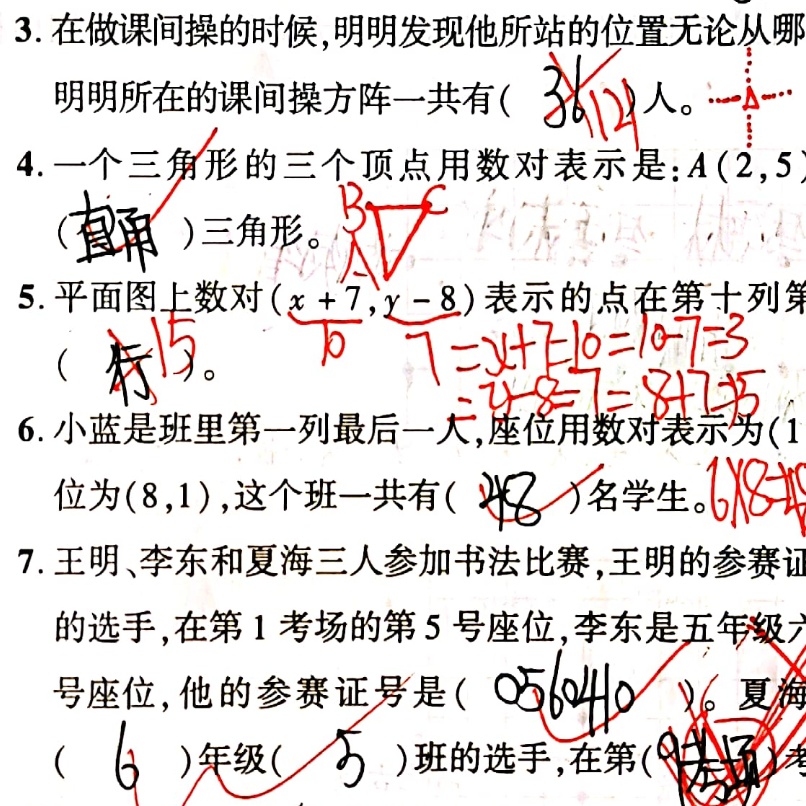 3. 在做课间操的时候,明明发现他所站的位置无论从哪
明明所在的课间操方阵一共有( 36 121 )人。
4. 一个三角形的三个顶点用数对表示是:A(2,5)
(直角)三角形。 B C A
5. 平面图上数对(x+7,y-8)表示的点在第十列第
10 7 =x+7=10=10-7=3
( 行 15 )。
=y-8=7=8+7=15
6. 小蓝是班里第一列最后一人,座位用数对表示为(1
位为(8,1),这个班一共有( 48 )名学生。6×8=48
7. 王明、李东和夏海三人参加书法比赛,王明的参赛证
的选手,在第1考场的第5号座位,李东是五年级六
号座位,他的参赛证号是( 0560410 )。夏海
( 6 )年级( 5 )班的选手,在第( 9 考场 )考